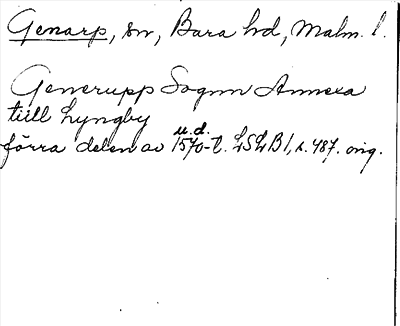 Genarp, sn, Bara hd, Malm. l.
Generupp Sognn Annexa
tiill Lyngby
u.d.
förra delen av 1570-t. LSLB1, s. 487. orig.